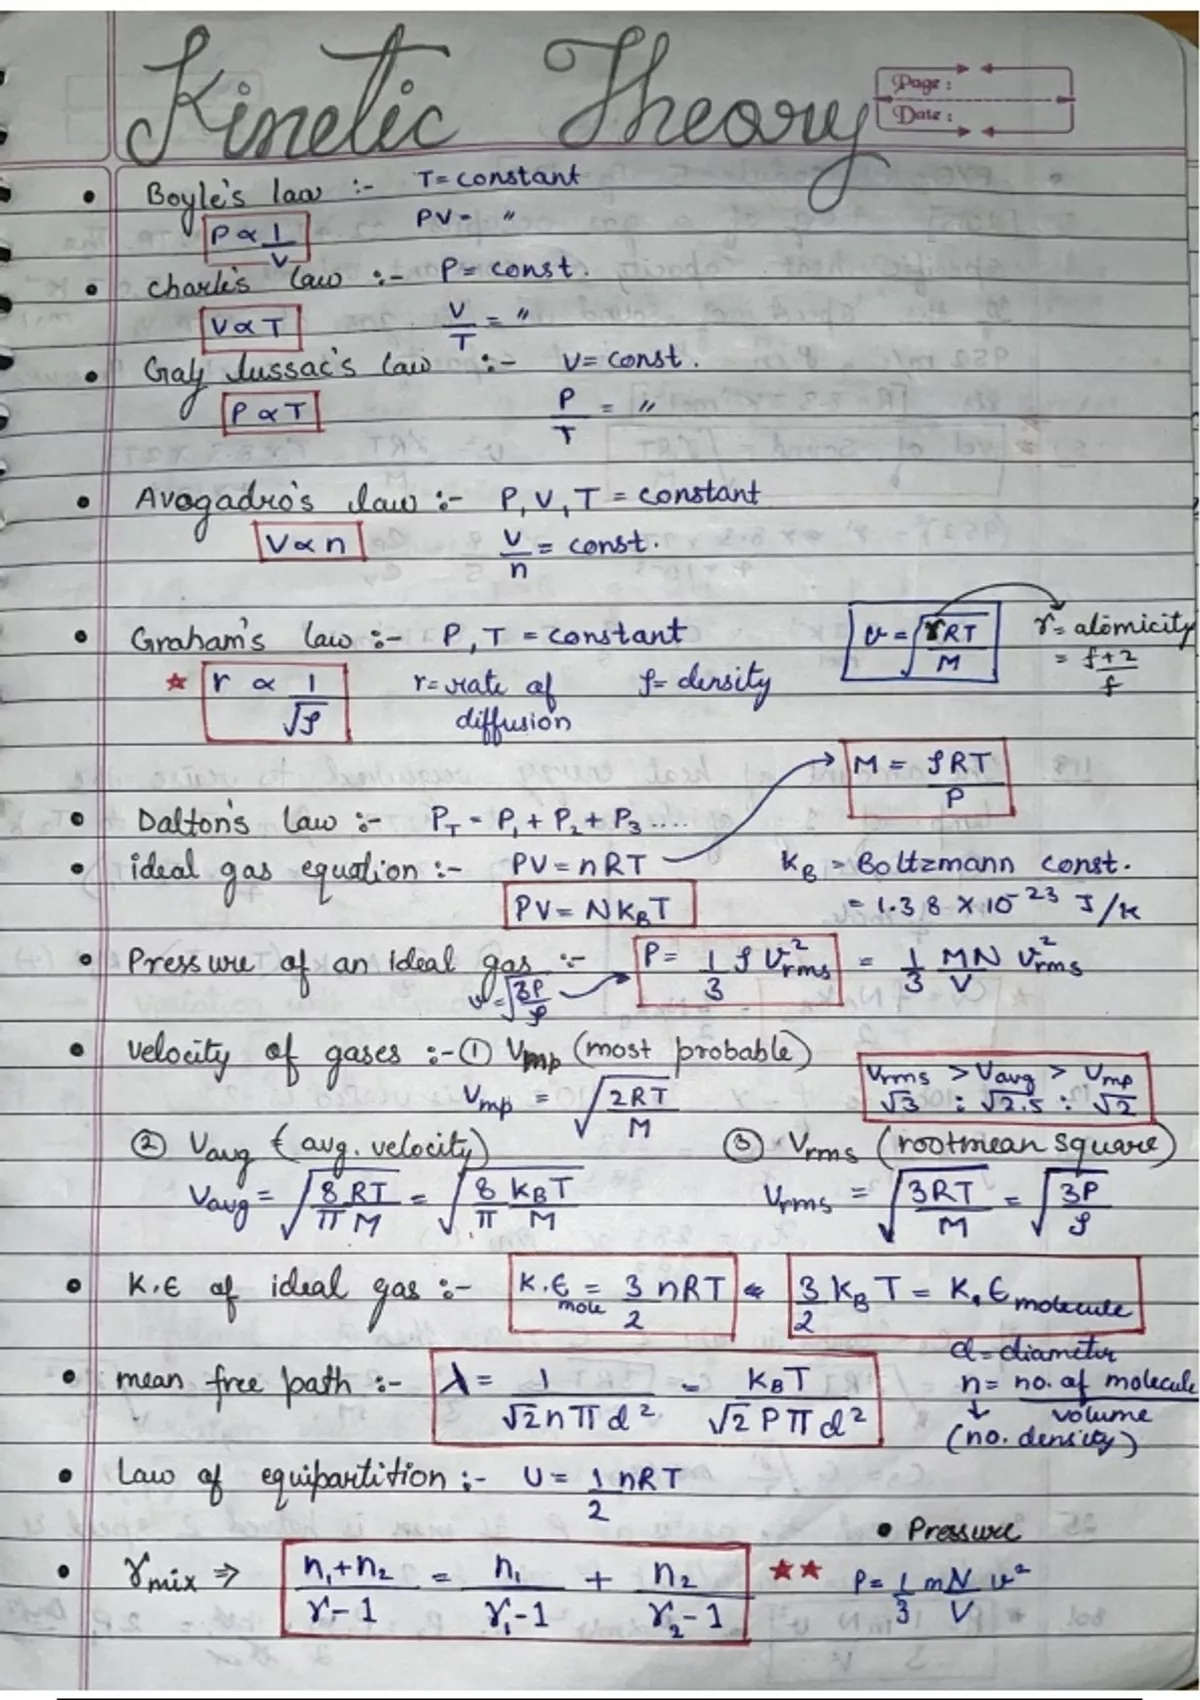 Kinetic Theory
Page :
Date :
• Boyle's law :- T= constant
P ∝ 1/V PV = "
• Charle's law :- P= const.
V ∝ T V/T = "
• Gay Jussac's law :- V= const.
P ∝ T P/T = "
• Avogadro's law :- P, V, T = constant
V ∝ n V/n = const.
• Graham's law :- P, T = constant v = √(γRT/M) γ= atomicity
= f+2/f
★ r ∝ 1/√ρ r= rate of diffusion ρ= density
M = ρRT/P
• Dalton's law :- P_T = P₁ + P₂ + P₃ ....
• ideal gas equation :- PV = nRT K_B = Boltzmann const.
PV = NK_BT = 1.38 × 10⁻²³ J/K
• Pressure of an ideal gas :- P = 1/3 ρ V²rms = 1/3 MN/V V²rms
v = √(3P/ρ)
• velocity of gases :- ① Vmp (most probable)
Vmp = √(2RT/M) Vrms > Vavg > Vmp
√3 : √2.5 : √2
② Vavg (avg. velocity) ③ Vrms (rootmean square)
Vavg = √(8RT/πM) = √(8 K_BT/πM) Vrms = √(3RT/M) = √(3P/ρ)
• K.E of ideal gas :- K.E mole = 3/2 nRT 3/2 K_B T = K.E molecule
d= diameter
• mean free path :- λ = 1/√2nπd² = K_BT/√2Pπd² n= no. of molecule/volume
(no. density)
• Law of equipartition :- U = 1/2 nRT
• Pressure
• γmix ⇒ n₁+n₂/γ-1 = n₁/γ₁-1 + n₂/γ₂-1 ★★ P= 1/3 mN/V v²